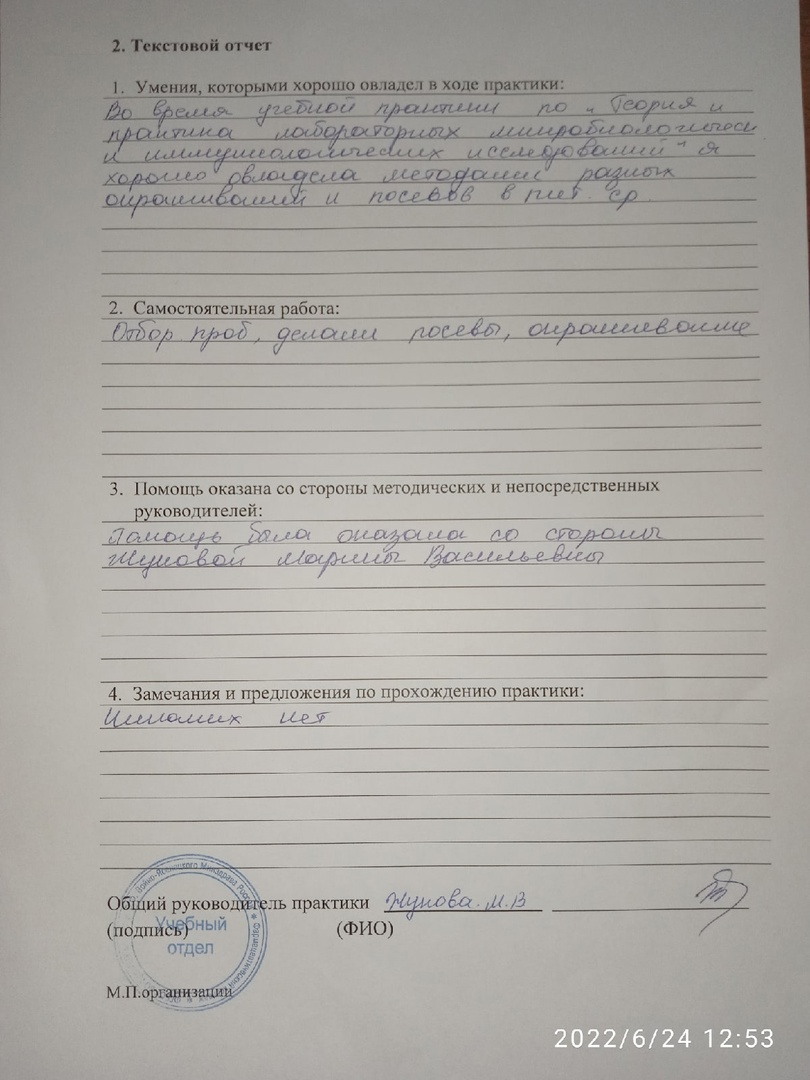 2. Текстовой отчет
1. Умения, которыми хорошо овладел в ходе практики:
Во время учебной практики по „Теория и
практика лабораторных микробиологически
и иммунологических исследований" я
хорошо овладела методами разных
окрашиваний и посевов в пит. ср.
2. Самостоятельная работа:
Отбор проб, делали посевы, окрашивание
3. Помощь оказана со стороны методических и непосредственных
руководителей:
Помощь была оказана со стороны
Жуковой Марины Васильевны
4. Замечания и предложения по прохождению практики:
Никаких нет
Общий руководитель практики Жукова. М.В
(подпись) (ФИО)
Войно-Ясенецкого Минздрава России
Фармацевтический
Учебный
отдел
М.П.организации
2022/6/24 12:53